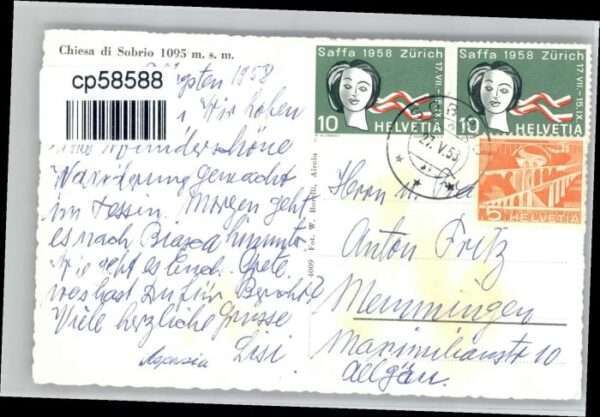 Chiesa di Sobrio 1095 m. s. m.
cp58588
Pfingsten 1958
Wir haben
eine wunderschöne
Wanderung gemacht
im Tessin. Morgen geht
es nach Biasca hinunter
Wie geht es Euch. Grete
was hast Du für Bericht?
Viele herzliche Grüsse
Lisi
4009 Fot. W. Airolo
Saffa 1958 Zürich
17.VII.-15.IX.
10 HELVETIA
Saffa 1958 Zürich
17.VII.-15.IX.
10 HELVETIA
27. V. 58
5 HELVETIA
Herrn und
Anton Fritz
Memmingen
Maximilianstr 10
Allgäu.